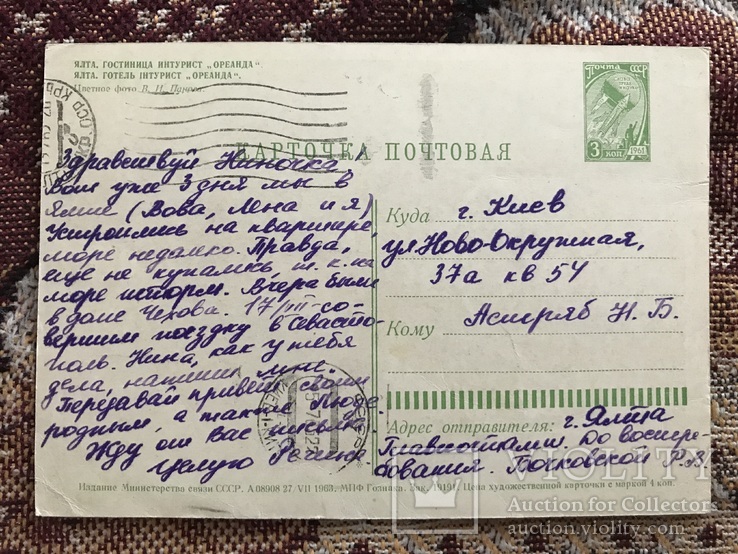 ЯЛТА. ГОСТИНИЦА ИНТУРИСТ „ОРЕАНДА“.
ЯЛТА. ГОТЕЛЬ ІНТУРИСТ „ОРЕАНДА“.
Цветное фото В. И. Панова.
ПОЧТА СССР
3 КОП. 1961
КАРТОЧКА ПОЧТОВАЯ
Здравствуй Ниночка!
Вот уже 3 дня мы в
Ялте (Вова, Лена и я)
Устроились на квартире,
море недалеко. Правда,
еще не купались, т.к. на
море шторм. Вчера были
в доме Чехова. 17/VIII-со-
вершим поездку в Севасто-
поль. Нина, как у тебя
дела, напиши мне.
Передавай привет своим
родным, а также Люсе.
Жду от Вас письма.
Целую
Куда г. Киев
ул Ново-Окружная,
37а кв 54
Кому Астряб Н. Б.
Адрес отправителя: г. Ялта
Главпочтамт. До востре-
бования. Р.В
Издание Министерства связи СССР. А 08908 27/VII 1963. МПФ Гознака. Зак. Цена художественной карточки с маркой 4 коп.
VIOLITY
Auction for Collectors
auction.violity.com